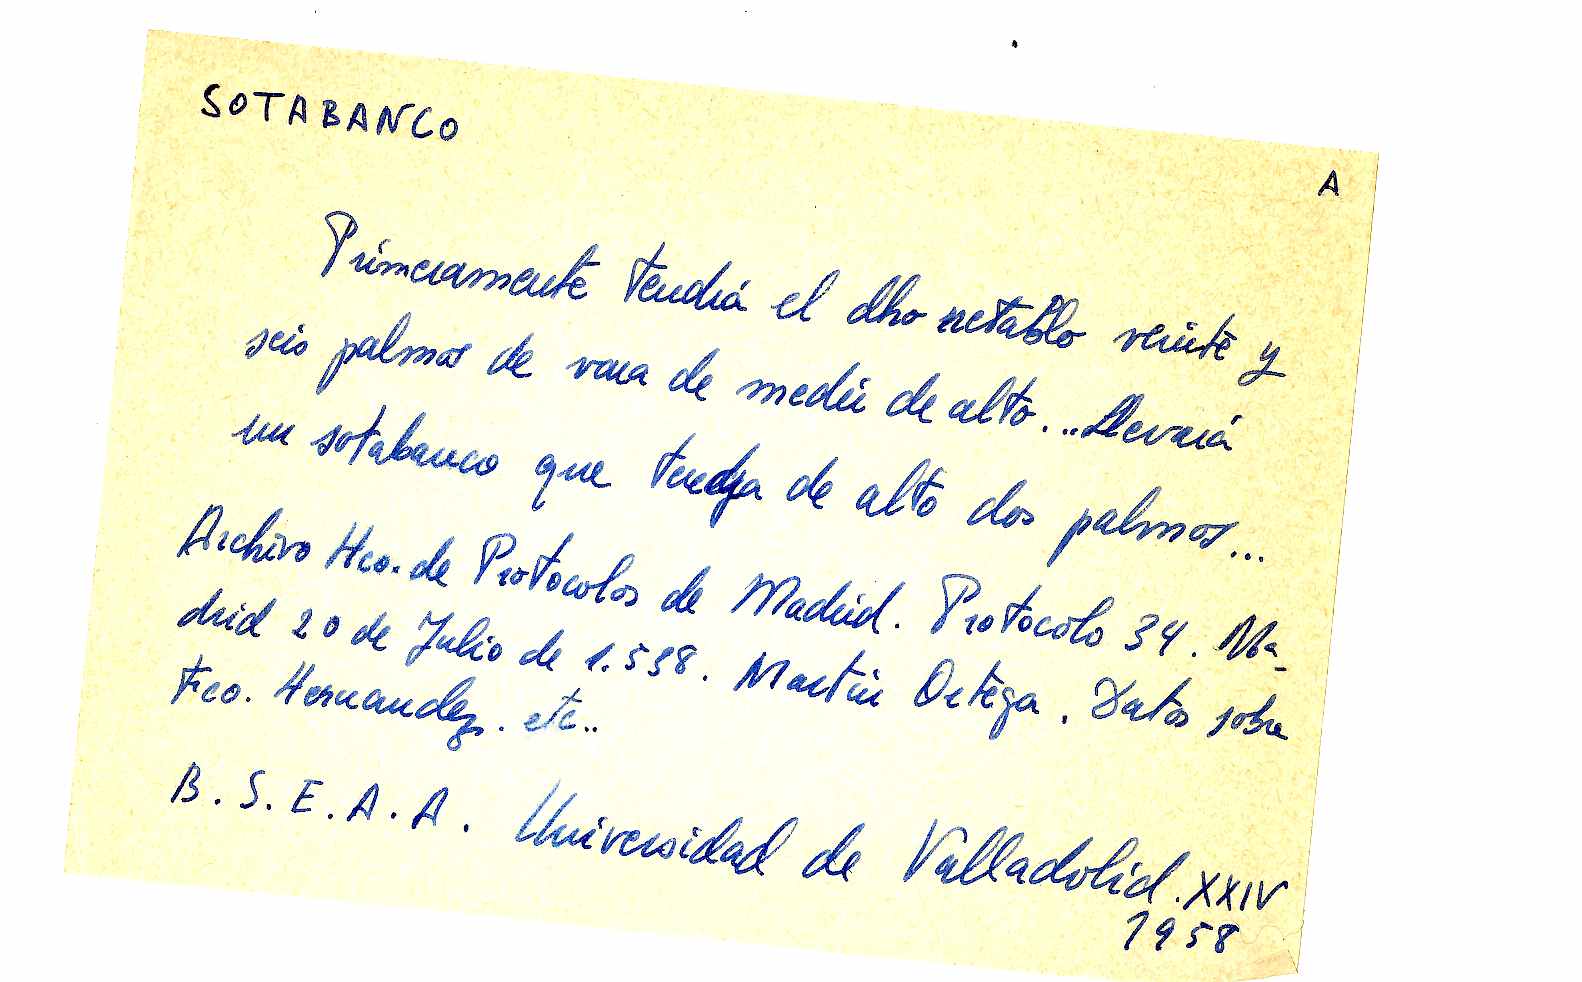 SOTABANCO
A
Primeramente tendrá el dho retablo veinte y
seis palmos de vara de medir de alto... llevará
un sotabanco que tenga de alto dos palmos...
Archivo Hco. de Protocolos de Madrid. Protocolo 34. Ma-
drid 20 de Julio de 1.538. Martín Ortega. Datos sobre
Fco. Hernandez. etc..
B. S. E. A. A. Universidad de Valladolid. XXIV
1958